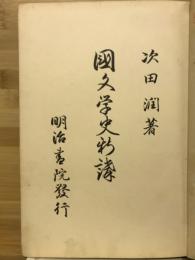 次田潤著
國文学史新講
明治書院發行